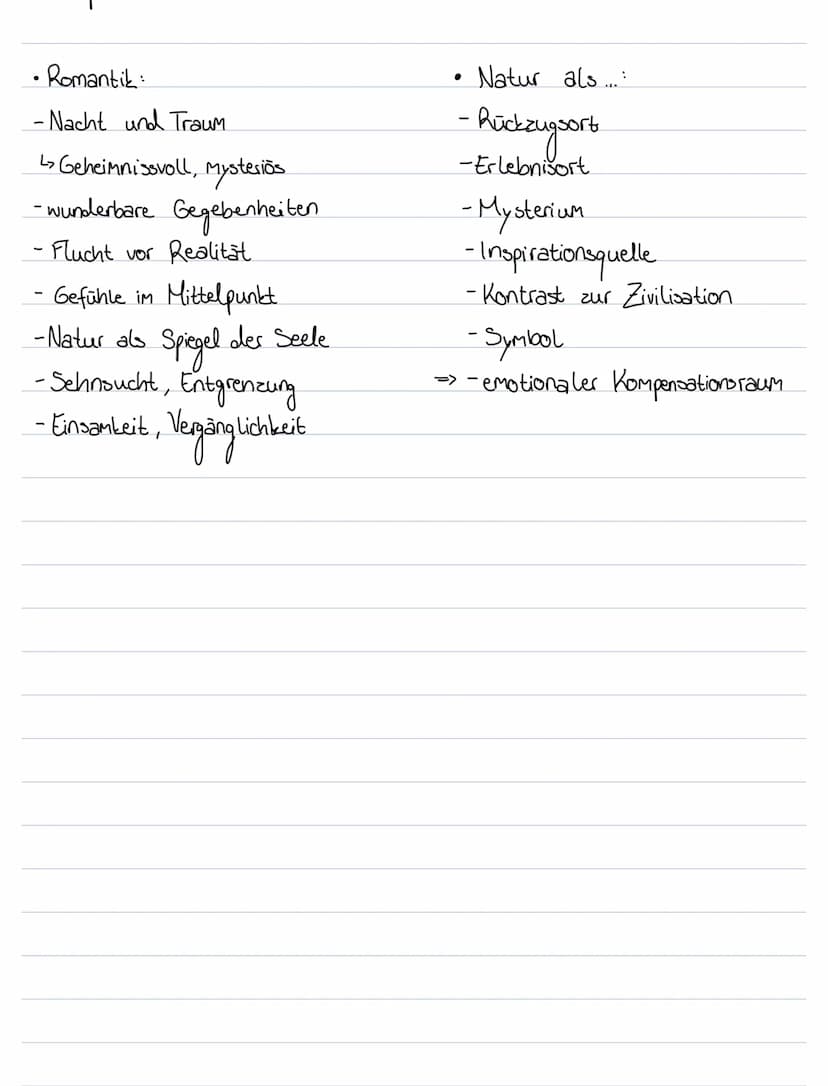 • Romantik:
- Nacht und Traum
↳ Geheimnissvoll, mysteriös
- wunderbare Gegebenheiten
- Flucht vor Realität
- Gefühle im Mittelpunkt
- Natur als Spiegel der Seele
- Sehnsucht, Entgrenzung
- Einsamkeit, Vergänglichkeit
• Natur als ...:
- Rückzugsort
- Erlebnisort
- Mysterium
- Inspirationsquelle
- Kontrast zur Zivilisation
- Symbol
=> - emotionaler Kompensationsraum